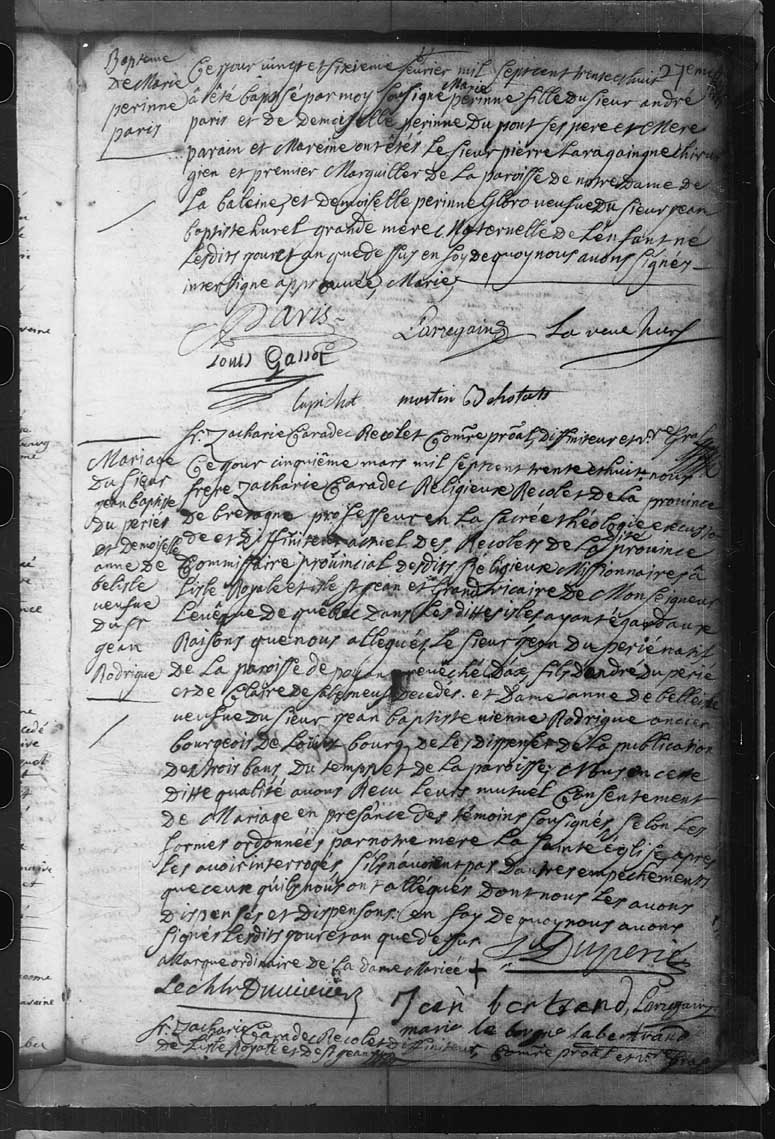 Bapteme
De Marie
perinne
paris
Ce jour vingt et sixieme fevrier mil sept cent trente et huit
27eme
à été baptisé par moy sousigné Marie perinne fille du sieur andré
paris et de demoiselle perinne Du pont ses pere et Mere
parain et Mareine ont étés Le sieur pierre Laragaingne chirur
gien et premier Marguiller de La paroisse de notre Dame de
La baleine, et demoiselle perinne veufue Du sieur jean
baptiste hurel grande mere Maternelle de L'enfant né
Lesdits jour et an que dessus en foy de quoy nous avons signés
intersigne approuvée, Marie,
Paris
Larragain
La veuve hurel
Louis Gassot
Lupichot
martin
fr. Zacharie Caradec Recolet Comre proāl, Diffiniteur et
Mariage
du sieur
jean baptiste
Du perié
et Demoiselle
anne de
belisle
veufue
du sr
jean
Rodrigue
Ce jour cinquiême mars mil sept cent trente et huit nous
frere Zacharie Caradec Religieux Recolet de La province
de bretagne professeur en La sacrée théologie
de et Diffiniteur actuel des Recolets de La dite province
Commissaire provincial desdits Réligieux Missionnaires à
L'isle Royale et isle st jean et Grand vicaire De Monseigneur
L'evêque de québec Dans Lesdittes isles ayant égard aux
Raisons que nous a alleguées Le sieur jean Du perié natif
De La paroisse de evêché Dax, fils D'andre Du perié
et de Claire de Décedés. et Dame anne de bellisle
veufue du sieur jean baptiste Rodrigue ancien
bourgeois De Louis bourg, de Les Dispenser de La publication
Des trois bans, Du temps et de La paroisse; Nous en cette
Ditte qualité avons Recu Leurs mutuel Consentement
De Mariage en présance des témoins sousignés, selon Les
formes ordonnées par notre mere La sainte église, apres
Les avoir interrogés s'ils n'avoient pas Dautres empêchements
que ceux quils nous ont allégués Dont nous Les avons
Dispensés et Dispensons. en foy De quoy nous avons
signés Lesdits jour et an que dessus
Duperié
a Marque ordinaire de La dame Mariée +
Le chlr Duvivier
Jean bertrand,
Larragain
marie le borgne labertrand
fr. Zacharie Caradec Recolet Diffiniteur, Comre proāl et
De L'isle Royale et de st jean